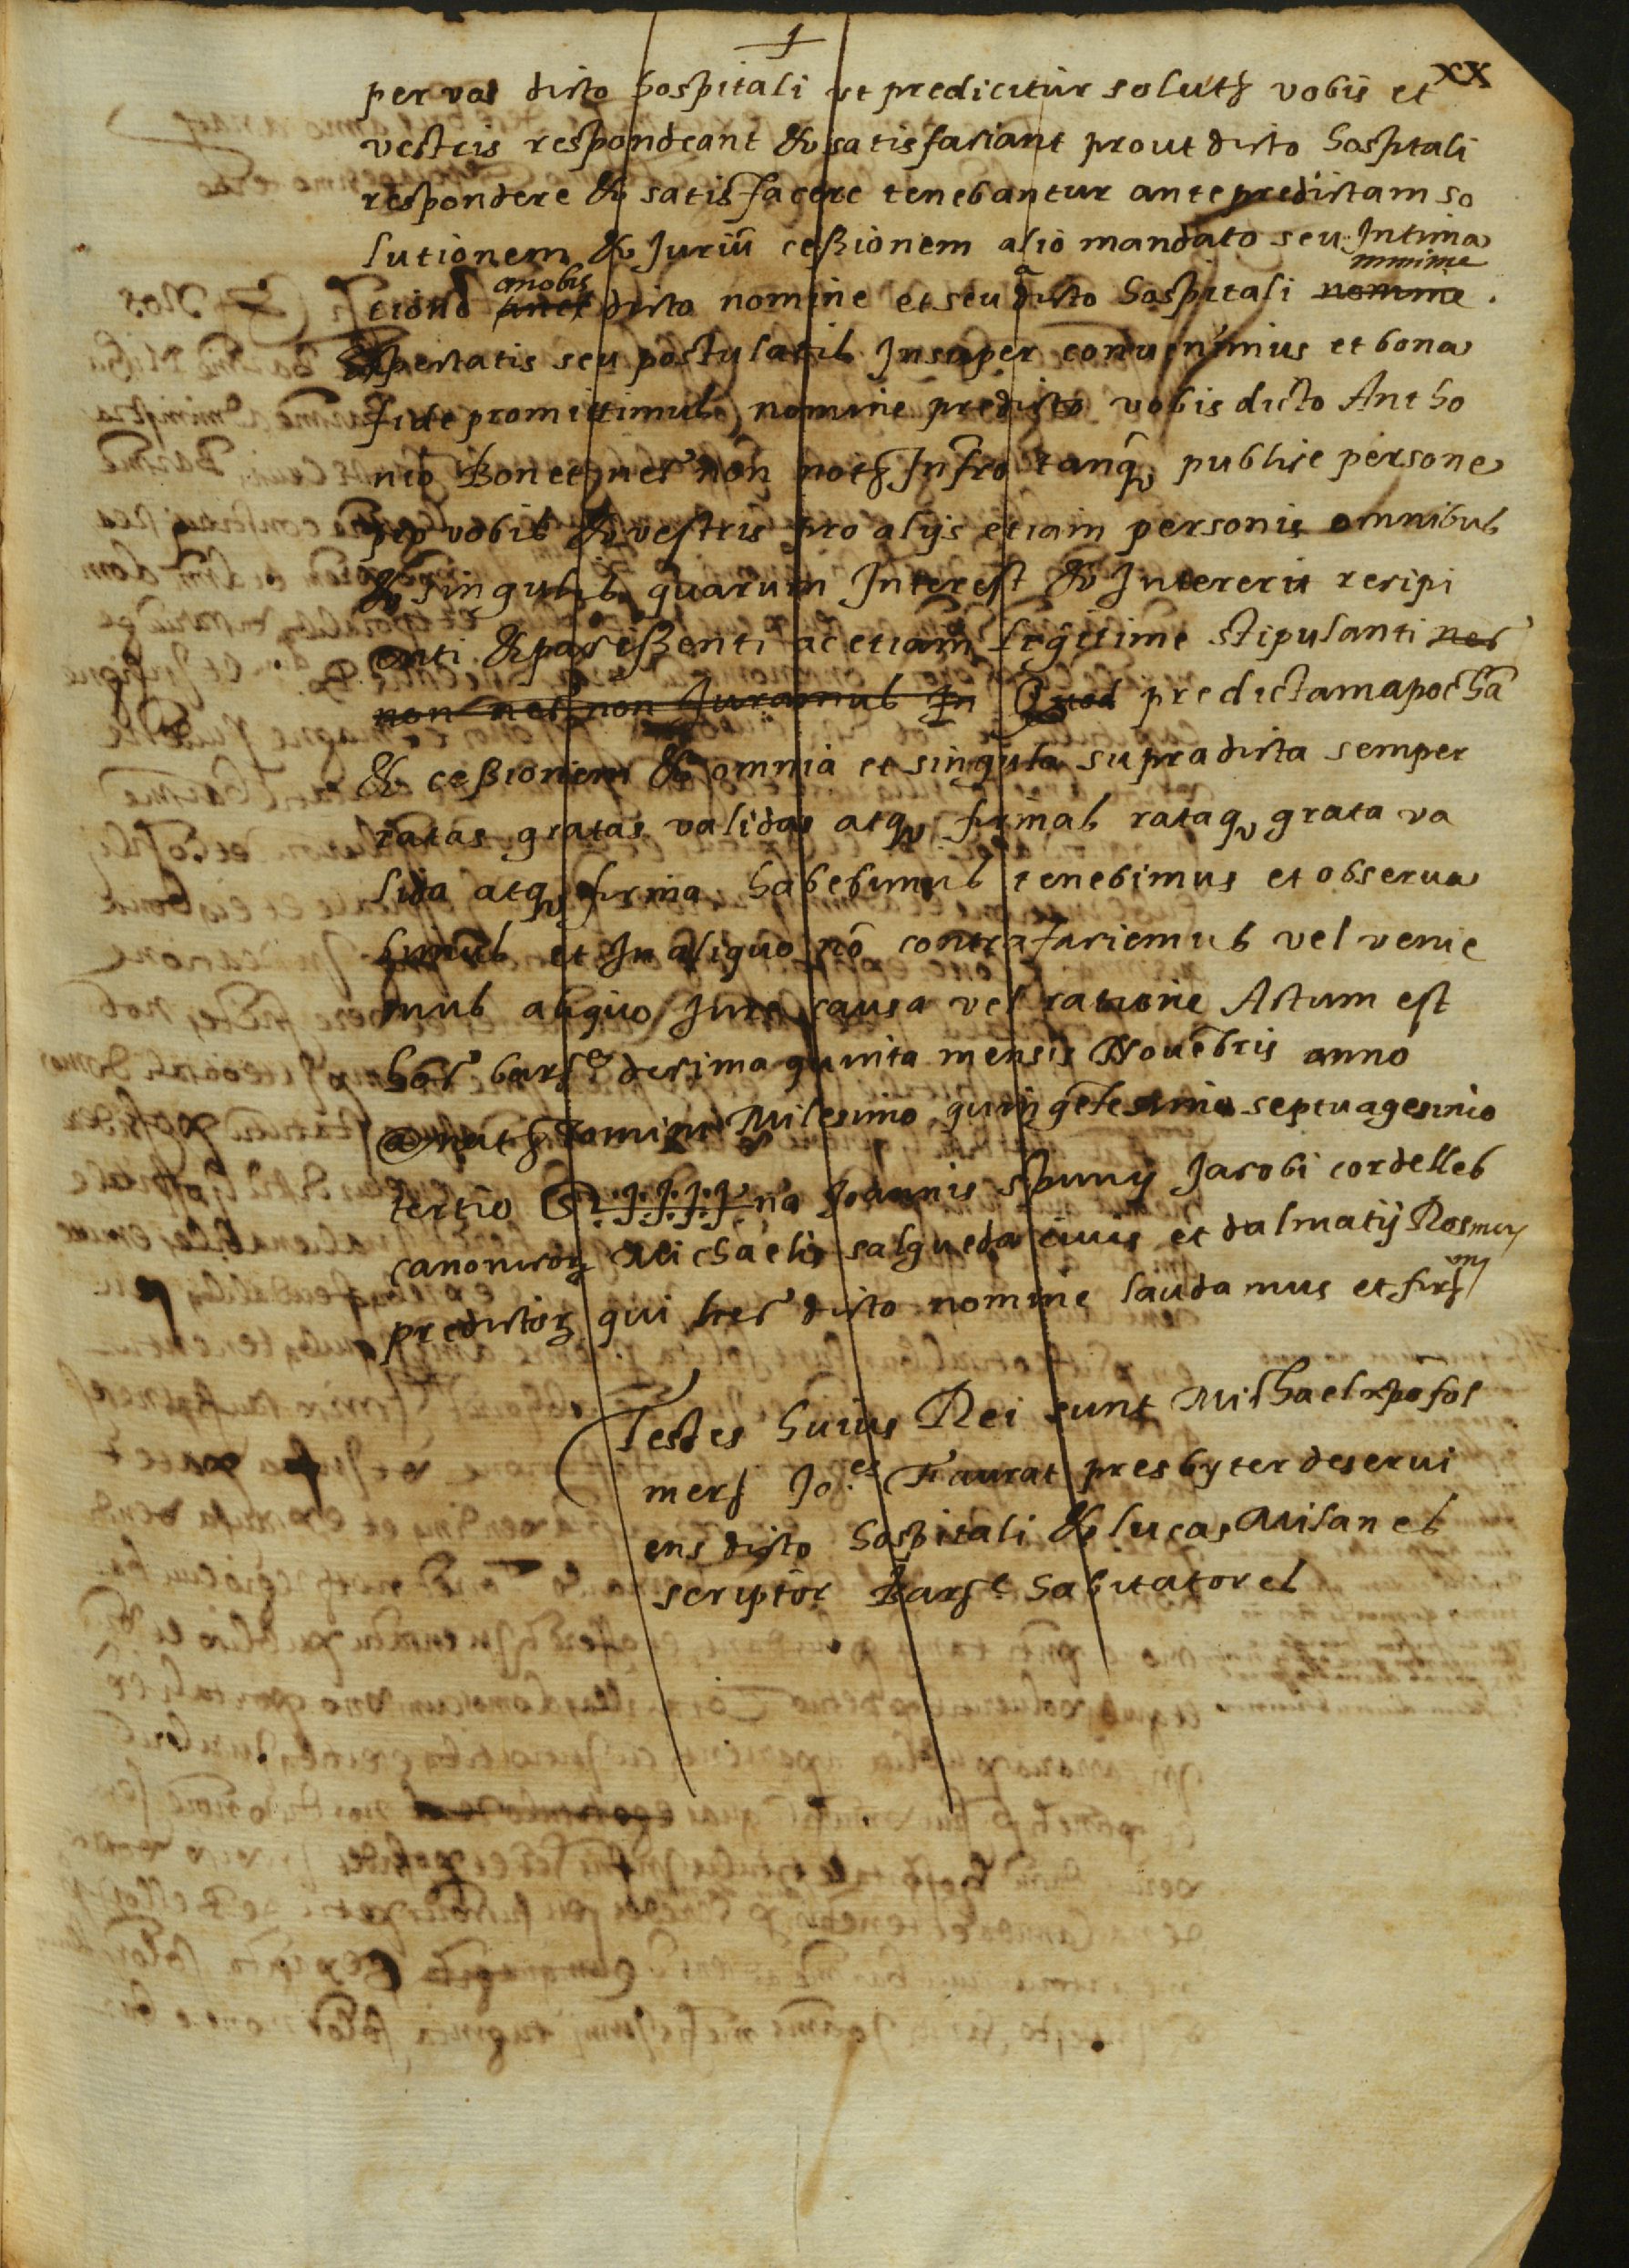 xx
per vos dicto hospitali ut predicitur soluts vobis et
vestris respondeant & satisfaciant prout dicto hospitali
respondere & satisfacere tenebantur ante predictam so
lutionem & Juriũ ceßionem alio mandato seu Intima
minime
anobis
tione dicto nomine et seu a dicto hospitali nomine
expectatis seu postulatis Insuper convenimus et bona
fide promittimus nomine predicto vobis dicto Antho
nio Bonet nec non not Infro tanq publice persone
pro vobis & vestris pro alijs etiam personis omnibus
& singulis quarum Interest & Intererit recipi
enti & pasißenti ac etiam legitime stipulanti nec
non nec non Juramus In Quod predictam apochã
& ceßionem & omnia et singula supradicta semper
ratas gratas validas atq firmas rataq grata va
lida atq firma habebimus tenebimus et observa
bimus et In aliquo nõ contrafaciemus vel venie
mus aliquo Jure causa vel ratione Actum est
hoc barⁿᵉ decima quinta mensis Novẽbris anno
a nat Domini Milesimo quingẽtesimo septuagesimo
tertio na Joannis spuny Jacobi cordelles
canonicoꝝ Michaelis salgueda civis et dalmatij Rosmeny
predictoꝝ qui hec dicto nomine laudamus et firm
Testes huius Rei sunt Michael xpofol
merſ Jo.es Faurat presbyter deservi
ens dicto hospitali & lucas Milanes
scriptor Barᵉ habitatores